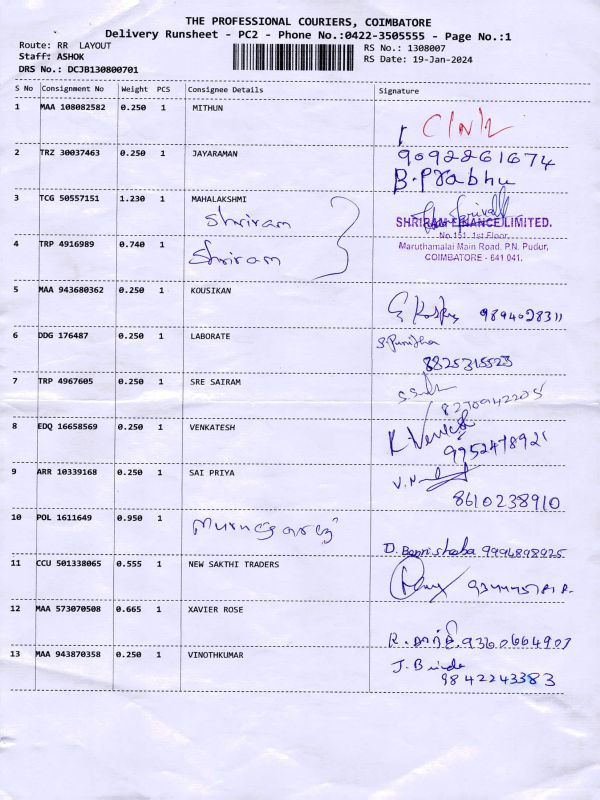 THE PROFESSIONAL COURIERS, COIMBATORE
Delivery Runsheet - PC2 - Phone No.:0422-3505555 - Page No.:1
Route: RR LAYOUT
RS No.: 1308007
Staff: ASHOK
RS Date: 19-Jan-2024
DRS No.: DCJB130800701
S No Consignment No Weight PCS Consignee Details Signature
1 MAA 108082582 0.250 1 MITHUN
2 TRZ 30037463 0.250 1 JAYARAMAN 9092261674
B.Prabhu
3 TCG 50557151 1.230 1 MAHALAKSHMI
Shriram
SHRIRAM FINANCE LIMITED.
No.151, 1st Floor,
4 TRP 4916989 0.740 1 Shriram
Maruthamalai Main Road, P.N. Pudur,
COIMBATORE - 641 041.
5 MAA 943680362 0.250 1 KOUSIKAN
9894028311
6 DDG 176487 0.250 1 LABORATE
S.Punitha
8825315523
7 TRP 4967605 0.250 1 SRE SAIRAM
8270942205
8 EDQ 16658569 0.250 1 VENKATESH
9952478921
9 ARR 10339168 0.250 1 SAI PRIYA
8610238910
10 POL 1611649 0.950 1
11 CCU 501338065 0.555 1 NEW SAKTHI TRADERS
12 MAA 573070508 0.665 1 XAVIER ROSE
9360664907
13 MAA 943870358 0.250 1 VINOTHKUMAR
9842243383